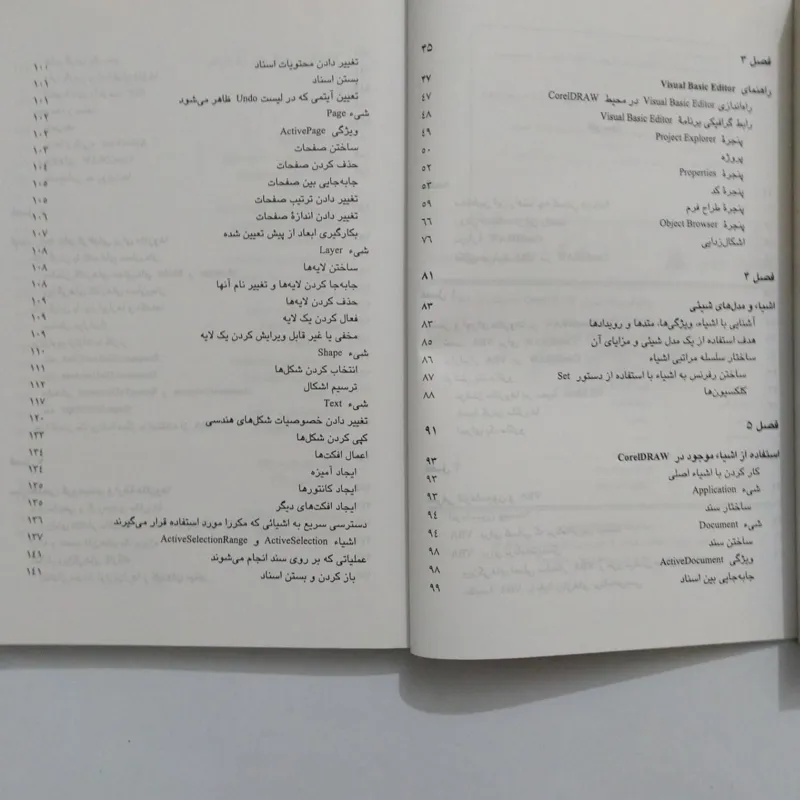 فصل ۳ ۴۵
راهنمای Visual Basic Editor ۴۷
راه‌اندازی Visual Basic Editor در محیط CorelDRAW ۴۷
رابط گرافیکی برنامهٔ Visual Basic Editor ۴۸
پنجرهٔ Project Explorer ۴۹
پروژه ۵۰
پنجرهٔ Properties ۵۲
پنجرهٔ کد ۵۳
پنجرهٔ طراح فرم ۵۹
پنجرهٔ Object Browser ۶۶
اشکال‌زدایی ۷۶
فصل ۴ ۸۱
اشیاء و مدل‌های شیئی ۸۳
آشنایی با اشیاء، ویژگی‌ها، متدها و رویدادها ۸۳
هدف استفاده از یک مدل شیئی و مزایای آن ۸۵
ساختار سلسله مراتبی اشیاء ۸۶
ساختن رفرنس به اشیاء با استفاده از دستور Set ۸۷
کلکسیون‌ها ۸۸
فصل ۵ ۹۱
استفاده از اشیاء موجود در CorelDRAW ۹۳
کار کردن با اشیاء اصلی ۹۳
شیء Application ۹۳
ساختار سند ۹۴
شیء Document ۹۴
ساختن سند ۹۸
ویژگی ActiveDocument ۹۸
جابه‌جایی بین اسناد ۹۹
تغییر دادن محتویات اسناد ۱۰۱
بستن اسناد ۱۰۱
تعیین آیتمی که در لیست Undo ظاهر می‌شود ۱۰۱
شیء Page ۱۰۲
ویژگی ActivePage ۱۰۲
ساختن صفحات ۱۰۳
حذف کردن صفحات ۱۰۴
جابه‌جایی بین صفحات ۱۰۵
تغییر دادن ترتیب صفحات ۱۰۵
تغییر دادن اندازهٔ صفحات ۱۰۶
بکارگیری ابعاد از پیش تعیین شده ۱۰۷
شیء Layer ۱۰۸
ساختن لایه‌ها ۱۰۸
جابه‌جا کردن لایه‌ها و تغییر نام آنها ۱۰۸
حذف کردن لایه‌ها ۱۰۹
فعال کردن یک لایه ۱۰۹
مخفی یا غیر قابل ویرایش کردن یک لایه ۱۰۹
شیء Shape ۱۱۰
انتخاب کردن شکل‌ها ۱۱۱
ترسیم اشکال ۱۱۲
شیء Text ۱۱۷
تغییر دادن خصوصیات شکل‌های هندسی ۱۲۰
کپی کردن شکل‌ها ۱۳۳
اعمال افکت‌ها ۱۳۴
ایجاد آمیزه ۱۳۴
ایجاد کانتورها ۱۳۵
ایجاد افکت‌های دیگر ۱۳۵
دسترسی سریع به اشیائی که مکررا مورد استفاده قرار می‌گیرند ۱۳۶
اشیاء ActiveSelection و ActiveSelectionRange ۱۳۷
عملیاتی که بر روی سند انجام می‌شوند ۱۴۱
باز کردن و بستن اسناد ۱۴۱